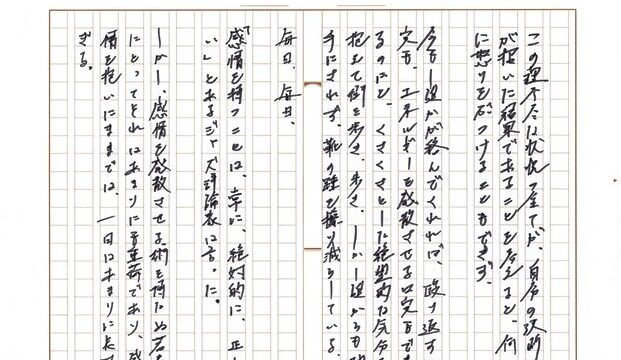 この理不尽な状況の全てが、自らの決断
が招いた結果であることを考えると、何
に怒りをぶつけることもできず、
今も一過
文を、エネルギーを発散させる口実もで
るのにと、くさくさとした絶望的な気分
抱えて街を歩き、歩き、しかし誰からも相
手にされず、靴の踵を擦り減らしている。
毎日、毎日。
「感情を持つことは、常に、絶対的に、正し
い」とあるジャズ評論家は言った。
しかし、感情を発散させる術を持たぬ若
にとってそれはあまりに重荷であり、
情を抱いたままでは、一日はあまりに長す
ぎる。